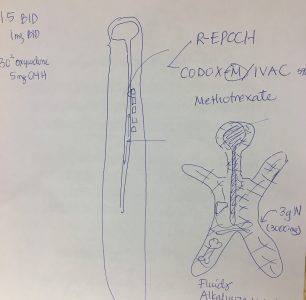 15 BID
1mg BID
30° oxycodone
5mg Q4H
R-EPOCH
CODOX-M/IVAC
Methotrexate
3g IV
(3000mg)
Fluids